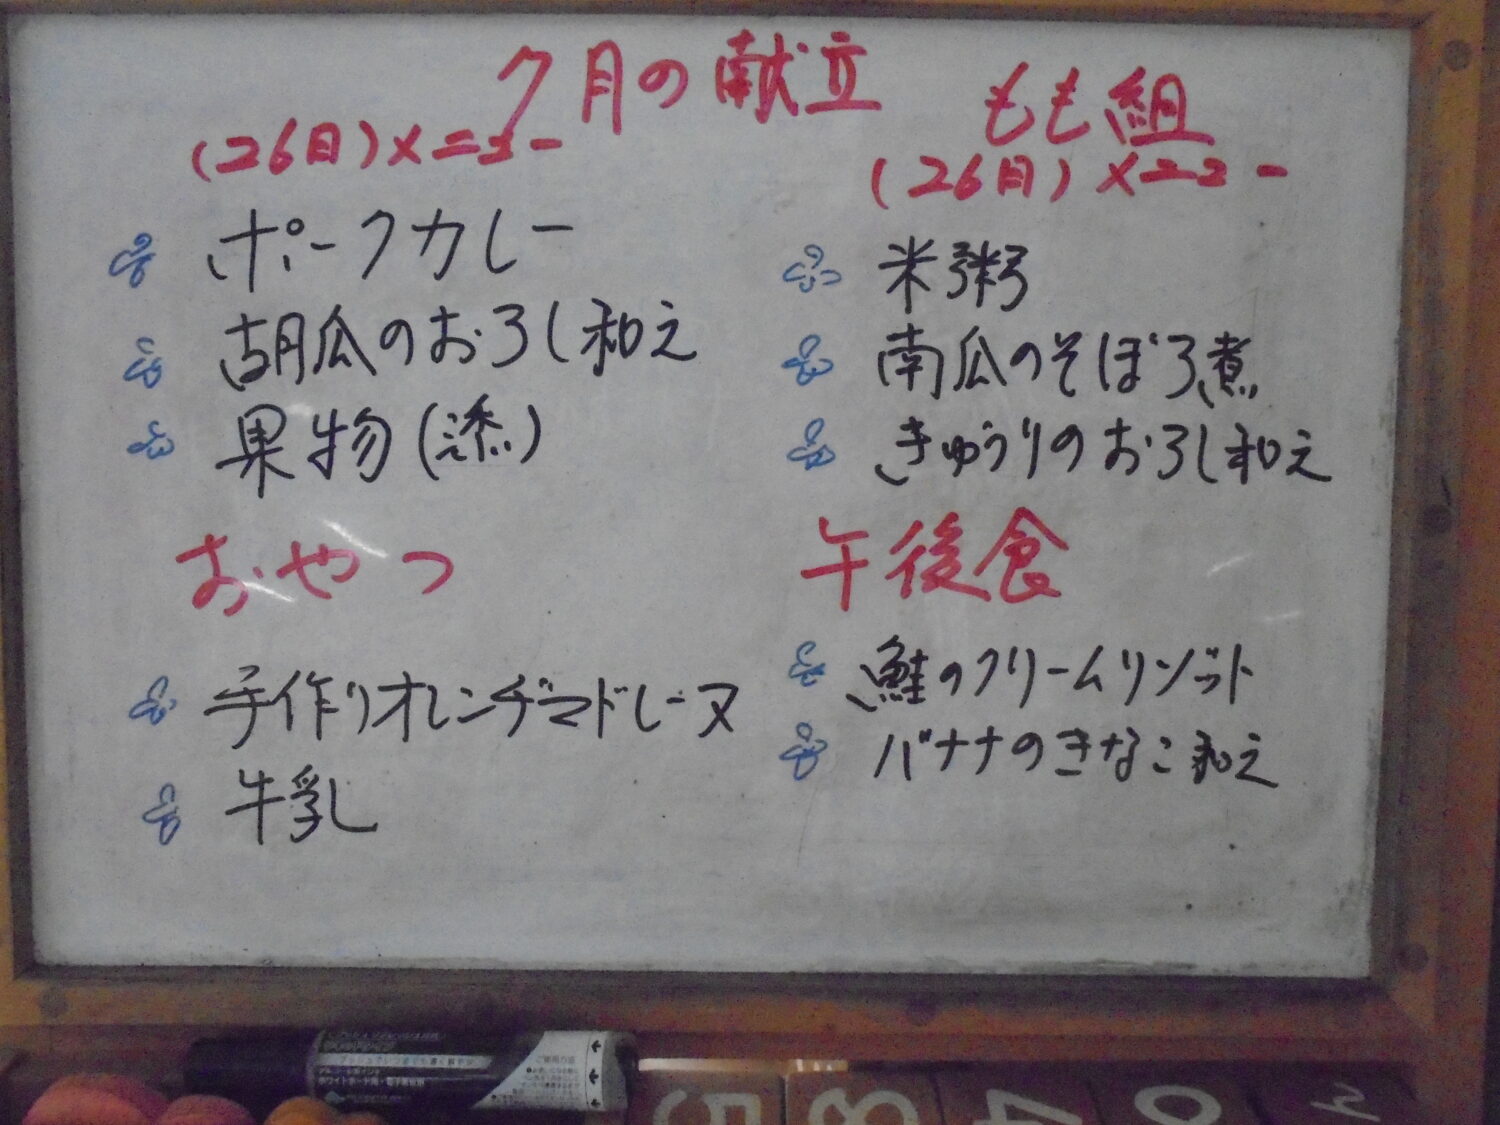 7月の献立
(26日)メニュー
ポークカレー
胡瓜のおろし和え
果物(添)
おやつ
手作りオレンヂマドレーヌ
牛乳
もも組
(26日)メニュー
米粥
南瓜のそぼろ煮
きゅうりのおろし和え
午後食
鮭のクリームリゾット
バナナのきなこ和え
ホワイトボード用・電子黒板用
5 8 4 0 ん